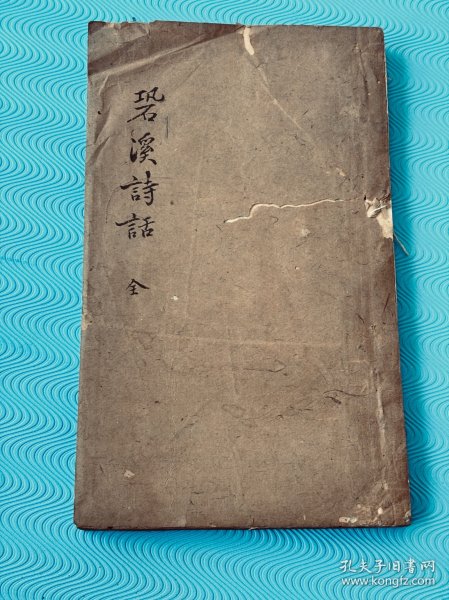 䂬溪詩話
全
孔夫子旧书网
www.kongfz.com